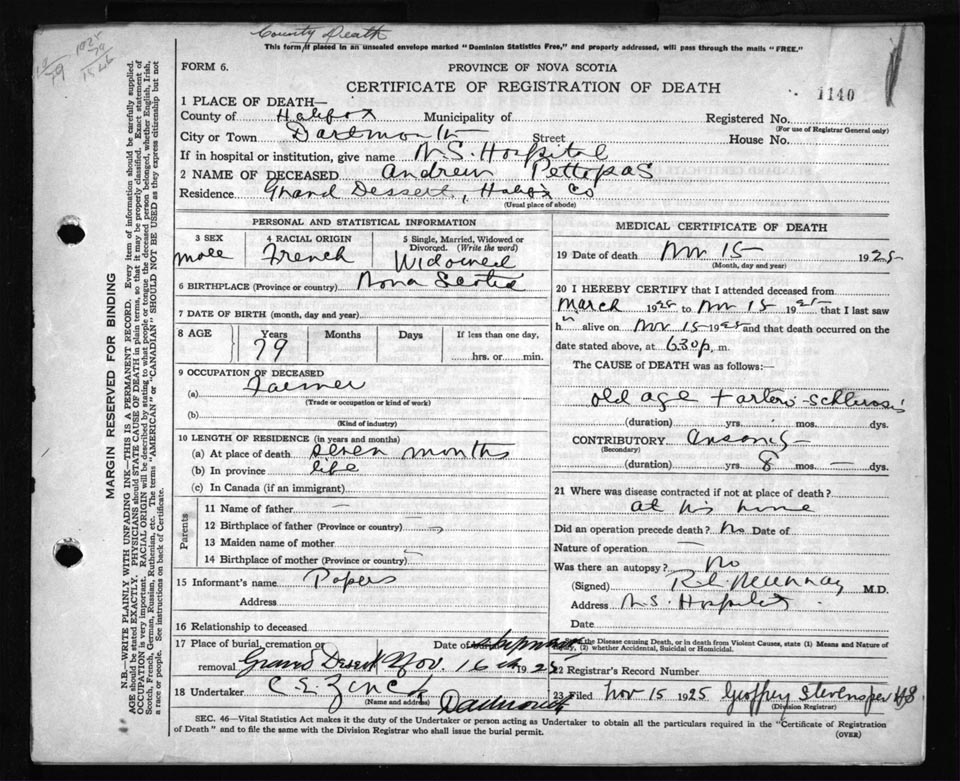 County Death
This form, if placed in an unsealed envelope marked "Dominion Statistics Free," and properly addressed, will pass through the mails "FREE."
1925
79
1846
FORM 6.
PROVINCE OF NOVA SCOTIA
CERTIFICATE OF REGISTRATION OF DEATH
1140
1 PLACE OF DEATH—
County of Halifax Municipality of Registered No.
(For use of Registrar General only)
City or Town Dartmouth Street House No.
If in hospital or institution, give name N.S. Hospital
2 NAME OF DECEASED Andrew Pettopas
Residence Grand Dessert, Halifax Co
(Usual place of abode)
PERSONAL AND STATISTICAL INFORMATION
3 SEX
male
4 RACIAL ORIGIN
French
5 Single, Married, Widowed or Divorced. (Write the word)
Widowed
6 BIRTHPLACE (Province or country) Nova Scotia
7 DATE OF BIRTH (month, day and year)
8 AGE Years Months Days If less than one day,
79 hrs. or min.
9 OCCUPATION OF DECEASED
(a) Farmer
(Trade or occupation or kind of work)
(b)
(Kind of industry)
10 LENGTH OF RESIDENCE (in years and months)
(a) At place of death seven months
(b) In province life
(c) In Canada (if an immigrant)
Parents
11 Name of father —
12 Birthplace of father (Province or country) —
13 Maiden name of mother
14 Birthplace of mother (Province or country) —
15 Informant's name Papers
Address
16 Relationship to deceased
17 Place of burial, cremation or Date of shipment
removal. Grand Desert Nov. 16th 1925
18 Undertaker C.E. Zinck
(Name and address) Dartmouth
MEDICAL CERTIFICATE OF DEATH
19 Date of death Nov 15 1925
(Month, day and year)
20 I HEREBY CERTIFY that I attended deceased from
March 1925 to Nov 15 1925 that I last saw
him alive on Nov 15 1925 and that death occurred on
date stated above, at 6.30 p. m.
The CAUSE of DEATH was as follows:—
old age + arterio-schlerosis
(duration) yrs. mos. dys.
CONTRIBUTORY
(Secondary)
(duration) yrs. 8 mos. — dys.
21 Where was disease contracted if not at place of death?
at his home
Did an operation precede death? No Date of
Nature of operation —
Was there an autopsy? No
(Signed) M.D.
Address N.S. Hospital
Date
of the Disease causing Death, or in death from Violent Causes, state (1) Means and Nature of
(2) whether Accidental, Suicidal or Homicidal.
22 Registrar's Record Number
23 Filed Nov 15 1925 Geoffrey Stevens
(Division Registrar)
SEC. 46—Vital Statistics Act makes it the duty of the Undertaker or person acting as Undertaker to obtain all the particulars required in the "Certificate of Registration
of Death" and to file the same with the Division Registrar who shall issue the burial permit.
(OVER)
MARGIN RESERVED FOR BINDING
N.B.—WRITE PLAINLY WITH UNFADING INK—THIS IS A PERMANENT RECORD. Every item of information should be carefully supplied.
AGE should be stated EXACTLY. PHYSICIANS should STATE CAUSE OF DEATH in plain terms, so that it may be properly classified. Exact statement of
OCCUPATION is very important. RACIAL ORIGIN will be described by stating to what people or tongue the deceased person belonged, whether English, Irish,
Scotch, French, German, Russian, Ruthenian, etc. The terms "AMERICAN" or "CANADIAN" SHOULD NOT BE USED as they express citizenship but not
a race or people. See instructions on back of Certificate.